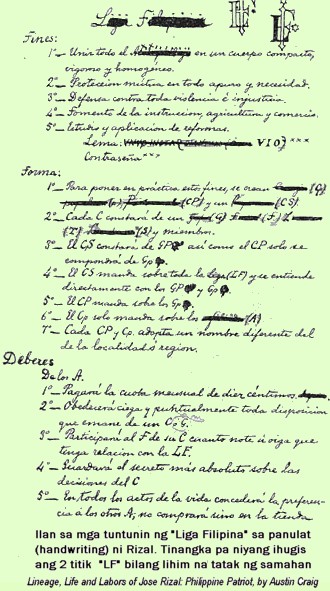 Liga Filipina
LF
Fines:
1º— Unir todo el en un cuerpo compacto,
vigoroso y homogéneo.
2º— Proteccion mútua en todo apuro y necesidad.
3º— Defensa contra toda violencia é injusticia.
4º— Fomento de la instruccion, agricultura y comercio.
5º— Estudio y aplicacion de reformas.
Lema: VIO7 ***
Contraseña ***
Forma:
1º— Para poner en práctica estos fines, se crean (G)
(CP) y un (CS).
2º— Cada C constará de un (F)
(T) (S) y miembros.
3º— El CS constará de GP así como el CP solo se
compondrá de Gp
4º— El CS manda sobre toda la Liga (LF) y se entiende
directamente con los GP y Gp
5º— El CP manda sobre los Gp
6º— El Gp solo manda sobre los (A)
7º— Cada CP y Cp. adopta un nombre diferente del
de la localidad ó region.
Deberes
De los A.
1º— Pagará la cuota mensual de diez céntimos.
2º— Obedecerá ciega y puntualmente toda disposicion
que emane de un C o G.
3º— Participará al F de su C cuanto note ú oiga que
tenga relacion con la LF.
4º— Guardará el secreto más absoluto sobre las
decisiones del C
5º— En todos los actos de la vida concederá la preferen-
cia á los otros A; no comprará sino en la tienda
Ilan sa mga tuntunin ng "Liga Filipina" sa panulat
(handwriting) ni Rizal. Tinangka pa niyang ihugis
ang 2 titik "LF" bilang lihim na tatak ng samahan
Lineage, Life and Labors of Jose Rizal: Philippine Patriot, by Austin Craig